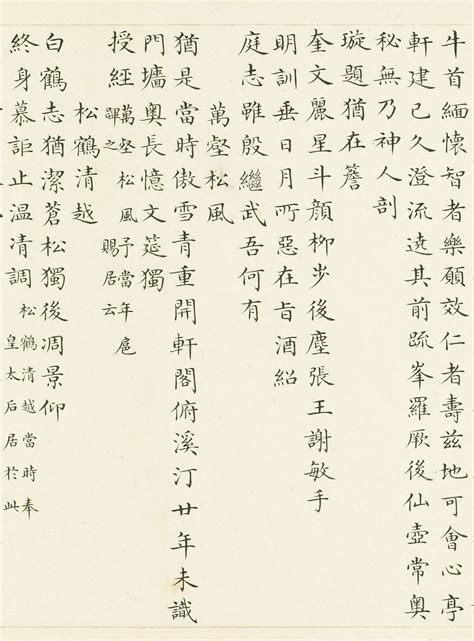 牛首緬懷智者樂願效仁者壽茲地可會心亭
軒建已久澄流遶其前疏峯羅厥後仙壺常奧
秘無乃神人剖
璇題猶在簷
奎文麗星斗顏柳步後塵張王謝敏手
明訓垂日月所惡在旨酒紹
庭志雖殷繼武吾何有
萬壑松風
猶是當時傲雪青重開軒閣俯溪汀廿年未識
門墻奧長憶文筵獨
授經
萬壑松風予當年扈
蹕之 賜居云
松鶴清越
白鶴志猶潔蒼松獨後凋景仰
終身慕詎止溫凊調
松鶴清越當時奉
皇太后居於此